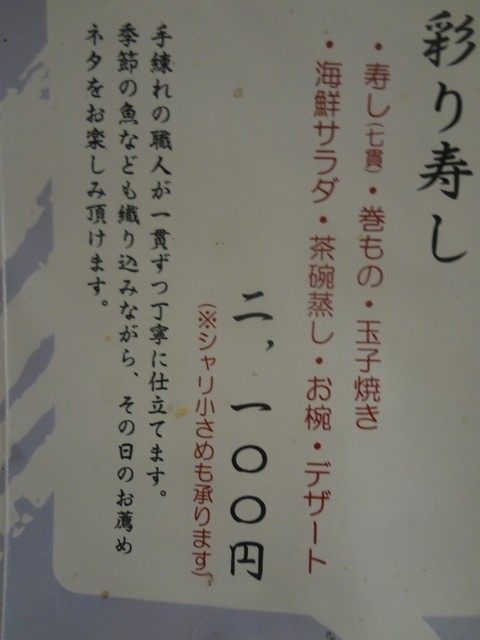 彩り寿し
・寿し(七貫)・巻もの・玉子焼き
・海鮮サラダ・茶碗蒸し・お椀・デザート
二,一〇〇円
(※シャリ小さめも承ります)
手練れの職人が一貫ずつ丁寧に仕立てます。
季節の魚なども織り込みながら、その日のお薦め
ネタをお楽しみ頂けます。